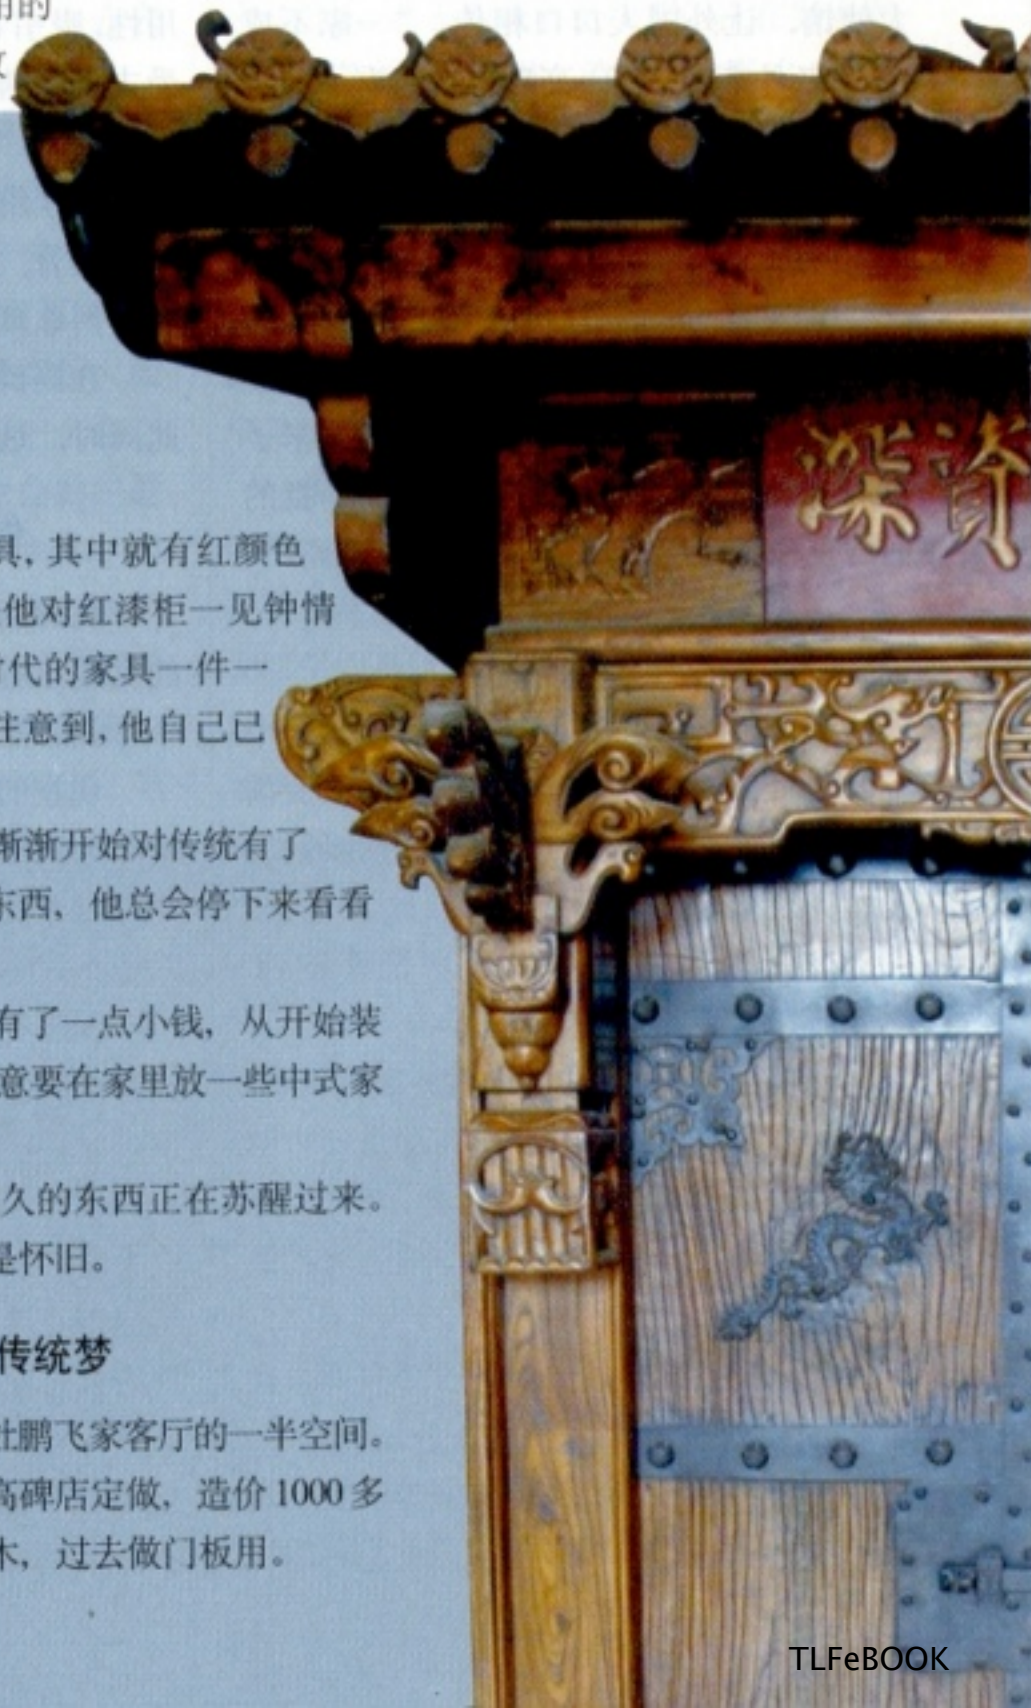 用的
深資
具,其中就有红颜色
他对红漆柜一见钟情
时代的家具一件一
注意到,他自己已
渐渐开始对传统有了
东西,他总会停下来看看
有了一点小钱,从开始装
意要在家里放一些中式家
久的东西正在苏醒过来。
是怀旧。
传统梦
杜鹏飞家客厅的一半空间。
高碑店定做,造价1000多
木,过去做门板用。
TLFeBOOK